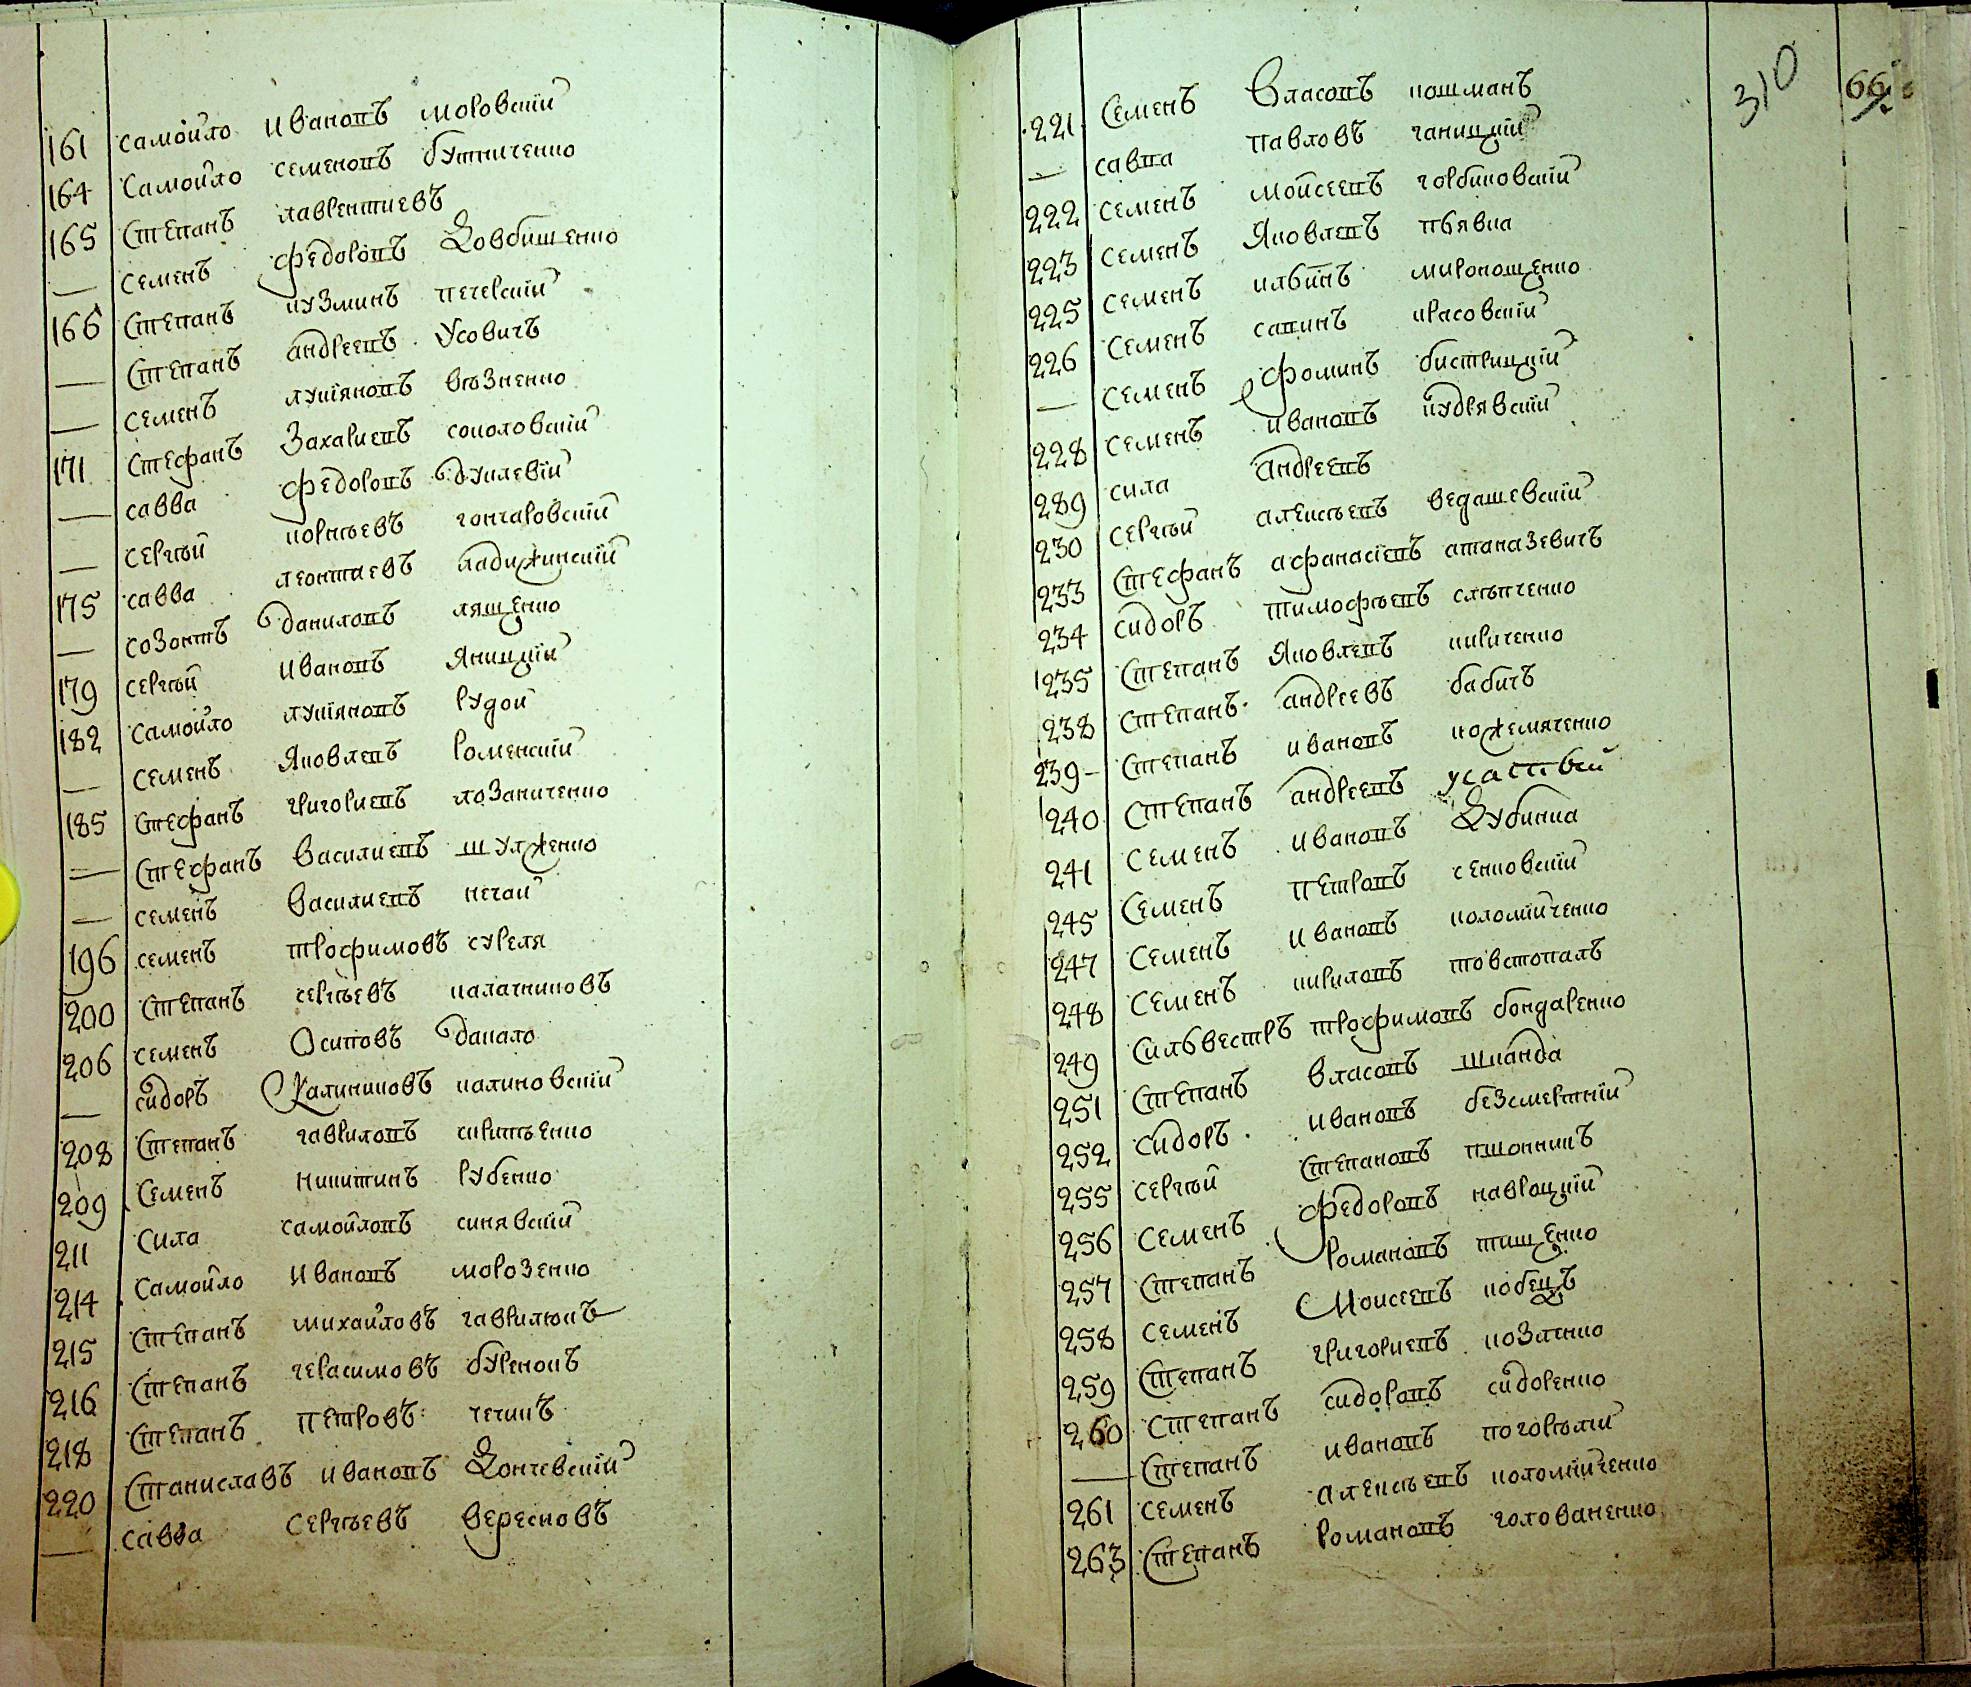 161 самойло Ивановъ моровскій
164 Самойло семеновъ бутниченко
165 Степанъ лаврентиевъ
— семенъ федоровъ Довбишенко
166 Степанъ кузминъ печерскій
— Степанъ андреевъ Усовичъ
— семенъ лукіяновъ возненко
171 Стефанъ Захариевъ соколовскій
— савва федоровъ дуклевій
— сергѣй корнѣевъ гончаровскій
175 савва леонтиевъ ладижинскій
— созонтъ даниловъ лященко
179 сергѣй Ивановъ Яницкій
182 самойло лукіяновъ рудой
— семенъ Яковлевъ роменскій
185 Стефанъ григориевъ лозаниченко
— Стефанъ Василиевъ шулженко
— семенъ Василиевъ нечай
196 семенъ трофимовъ суреля
200 Степанъ сергѣевъ калачниковъ
206 семенъ Осиповъ
— сидоръ Калиниковъ калиновскій
208 Степанъ гавриловъ
209 Семенъ никитинъ рубенко
211 Сила самойловъ синявскій
214 Самойло Ивановъ морозенко
215 Степанъ михайловъ гаврилюкъ
216 Степанъ герасимовъ буренокъ
218 Степанъ петровъ чечикъ
220 Станиславъ ивановъ Дончевскій
— савва Сергѣевъ вересновъ
310 66
221 Семенъ Власовъ кошманъ
— савва павловъ ганицкій
222 семенъ мойсеевъ горбиковскій
223 семенъ Яковлевъ пьявка
225 семенъ ильинъ мирокощенко
226 Семенъ савинъ красовскій
— Семенъ фоминъ бистрицкій
228 семенъ ивановъ кудрявскій
289 сила андреевъ
230 сергѣй алексѣевъ ведашевскій
233 Стефанъ афанасіевъ атаназевичъ
234 сидоръ тимофѣевъ слѣпченко
235 Степанъ Яковлевъ кириченко
238 Степанъ андреевъ бабичъ
239 – Степанъ ивановъ кожемяченко
240 Степанъ андреевъ усастый
241 семенъ ивановъ Дубинка
245 Семенъ петровъ сенковскій
247 Семенъ ивановъ коломійченко
248 Семенъ кириловъ товстопалъ
249 Сильвестръ трофимовъ бондаренко
251 Степанъ власовъ шканда
252 сидоръ ивановъ безсмертній
255 сергѣй Степановъ пшонникъ
256 Семенъ федоровъ навроцкій
257 Степанъ романовъ тищенко
258 семенъ Моисеевъ кобецъ
259 Степанъ григориевъ козленко
260 Степанъ сидоровъ сидоренко
— Степанъ ивановъ погорѣлій
261 семенъ алексѣевъ коломійченко
263 Степанъ романовъ голованенко